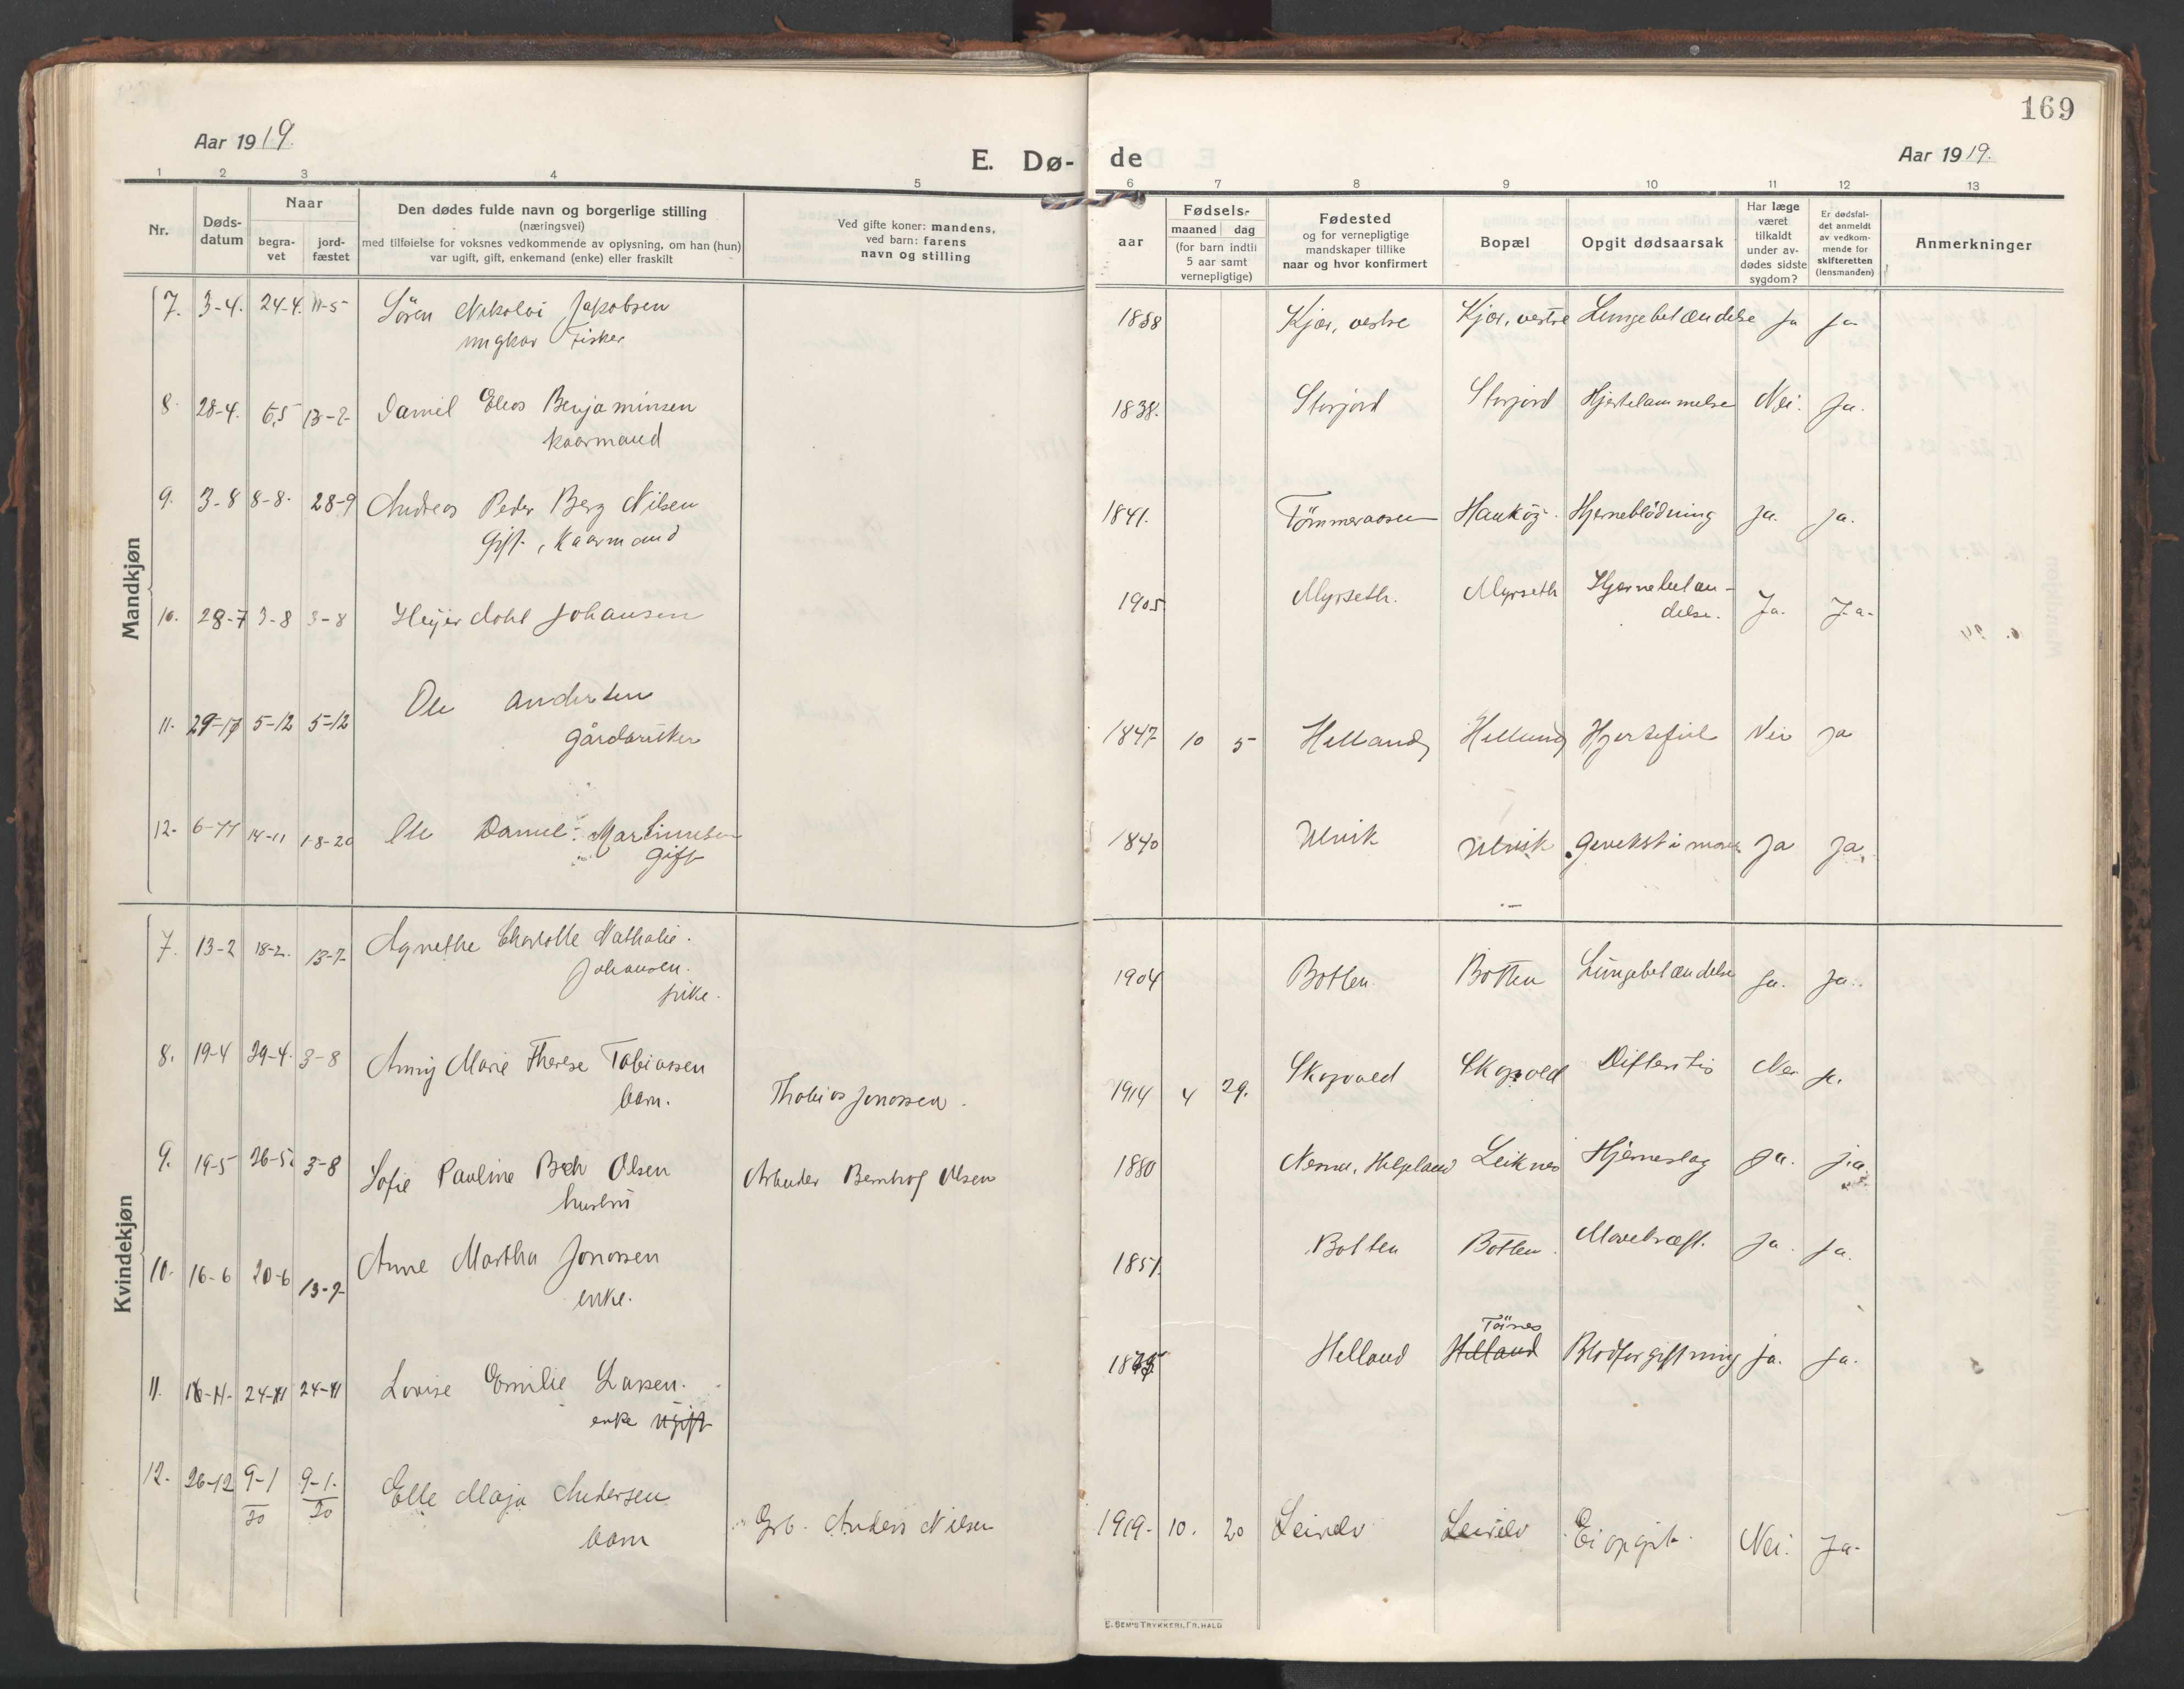 169
Aar 1919.
E. Dø-de
Aar 1919.
1 2 3 4 5 6 7 8 9 10 11 12 13
Nr.
Døds-
datum
Naar
begra-
vet
jord-
fæstet
Den dødes fulde navn og borgerlige stilling
(næringsvei)
med tilføielse for voksnes vedkommende av oplysning, om han (hun)
var ugift, gift, enkemand (enke) eller fraskilt
Ved gifte koner: mandens,
ved barn: farens
navn og stilling
aar
Fødsels-
maaned dag
(for barn indtil
5 aar samt
vernepligtige)
Fødested
og for vernepligtige
mandskaper tillike
naar og hvor konfirmert
Bopæl
Opgit dødsaarsak
Har læge
været
tilkaldt
under av-
dødes sidste
sygdom?
Er dødsfal-
det anmeldt
av vedkom-
mende for
skifteretten
(lensmanden)
Anmerkninger
Mandkjøn
7. 3-4. 24-4. 11-5 Sören Nikolai Jakobsen 1858 Kjær, vestre Kjær, vestre Lungebetændelse Ja Ja
ungkar Fisker
8. 28-4. 6,5 13-7- Daniel Elias Benjaminsen 1838. Storjord Storjord Hjertelammelse Nei. Ja.
kaarmand
9. 3-8 8-8. 28-9 Andreas Peder Berg Nilsen 1841. Tömmeraasen Hauköy. Hjerneblödning Ja. Ja.
Gift, Kaarmand
10. 28-7 3-8 3-8 Heyerdahl Johansen 1905 Myrseth. Myrseth Hjernebetæn-
delse. Ja. Ja.
11. 29-11 5-12 5-12 Ole Andersen 1847 10 5 Helland Helland Hjertefeil Nei Ja
gårdbruker
12. 6-11 14-11 1-8-20 Ole Daniel Martinussen 1840 Ulvik Ulvik gevekst i maven Ja Ja.
Gift
Kvindekjøn
7. 13-2 18-2. 13-7- Agnethe Charlotte Nathalie. 1904 Botten. Botten Lungebetændelse Ja. Ja.
Johansen.
pike.
8. 19-4 29-4. 3-8 Anny Marie Therese Tobiassen Thobias Jonassen. 1914 4 29. Skogvold Skogvold Difteritis Nei Ja.
barn.
9. 19-5 26-5. 3-8 Sofie Pauline Bech Olsen Arbeider Bernhof Olsen 1880 Nesna, Helgeland Leiknes Hjerneslag Ja. Ja.
hustru
10. 16-6 20-6 13-7- Anne Martha Jonassen 1851. Botten Botten. Mavekræft. Ja. Ja.
enke.
11. 16-11- 24-11 24-11 Lovise Emilie Larsen. Helland Töines Helland Blodforgiftning Ja. Ja.
enke ugift
12. 26-12 9-1/20 9-1./20 Elle Maja Andersen Grb. Anders Nilsen 1919- 10. 20 Leirelv Leirelv Ei opgit. Nei. Ja-
barn
E. SEM'S TRYKKERI, FR.HALD